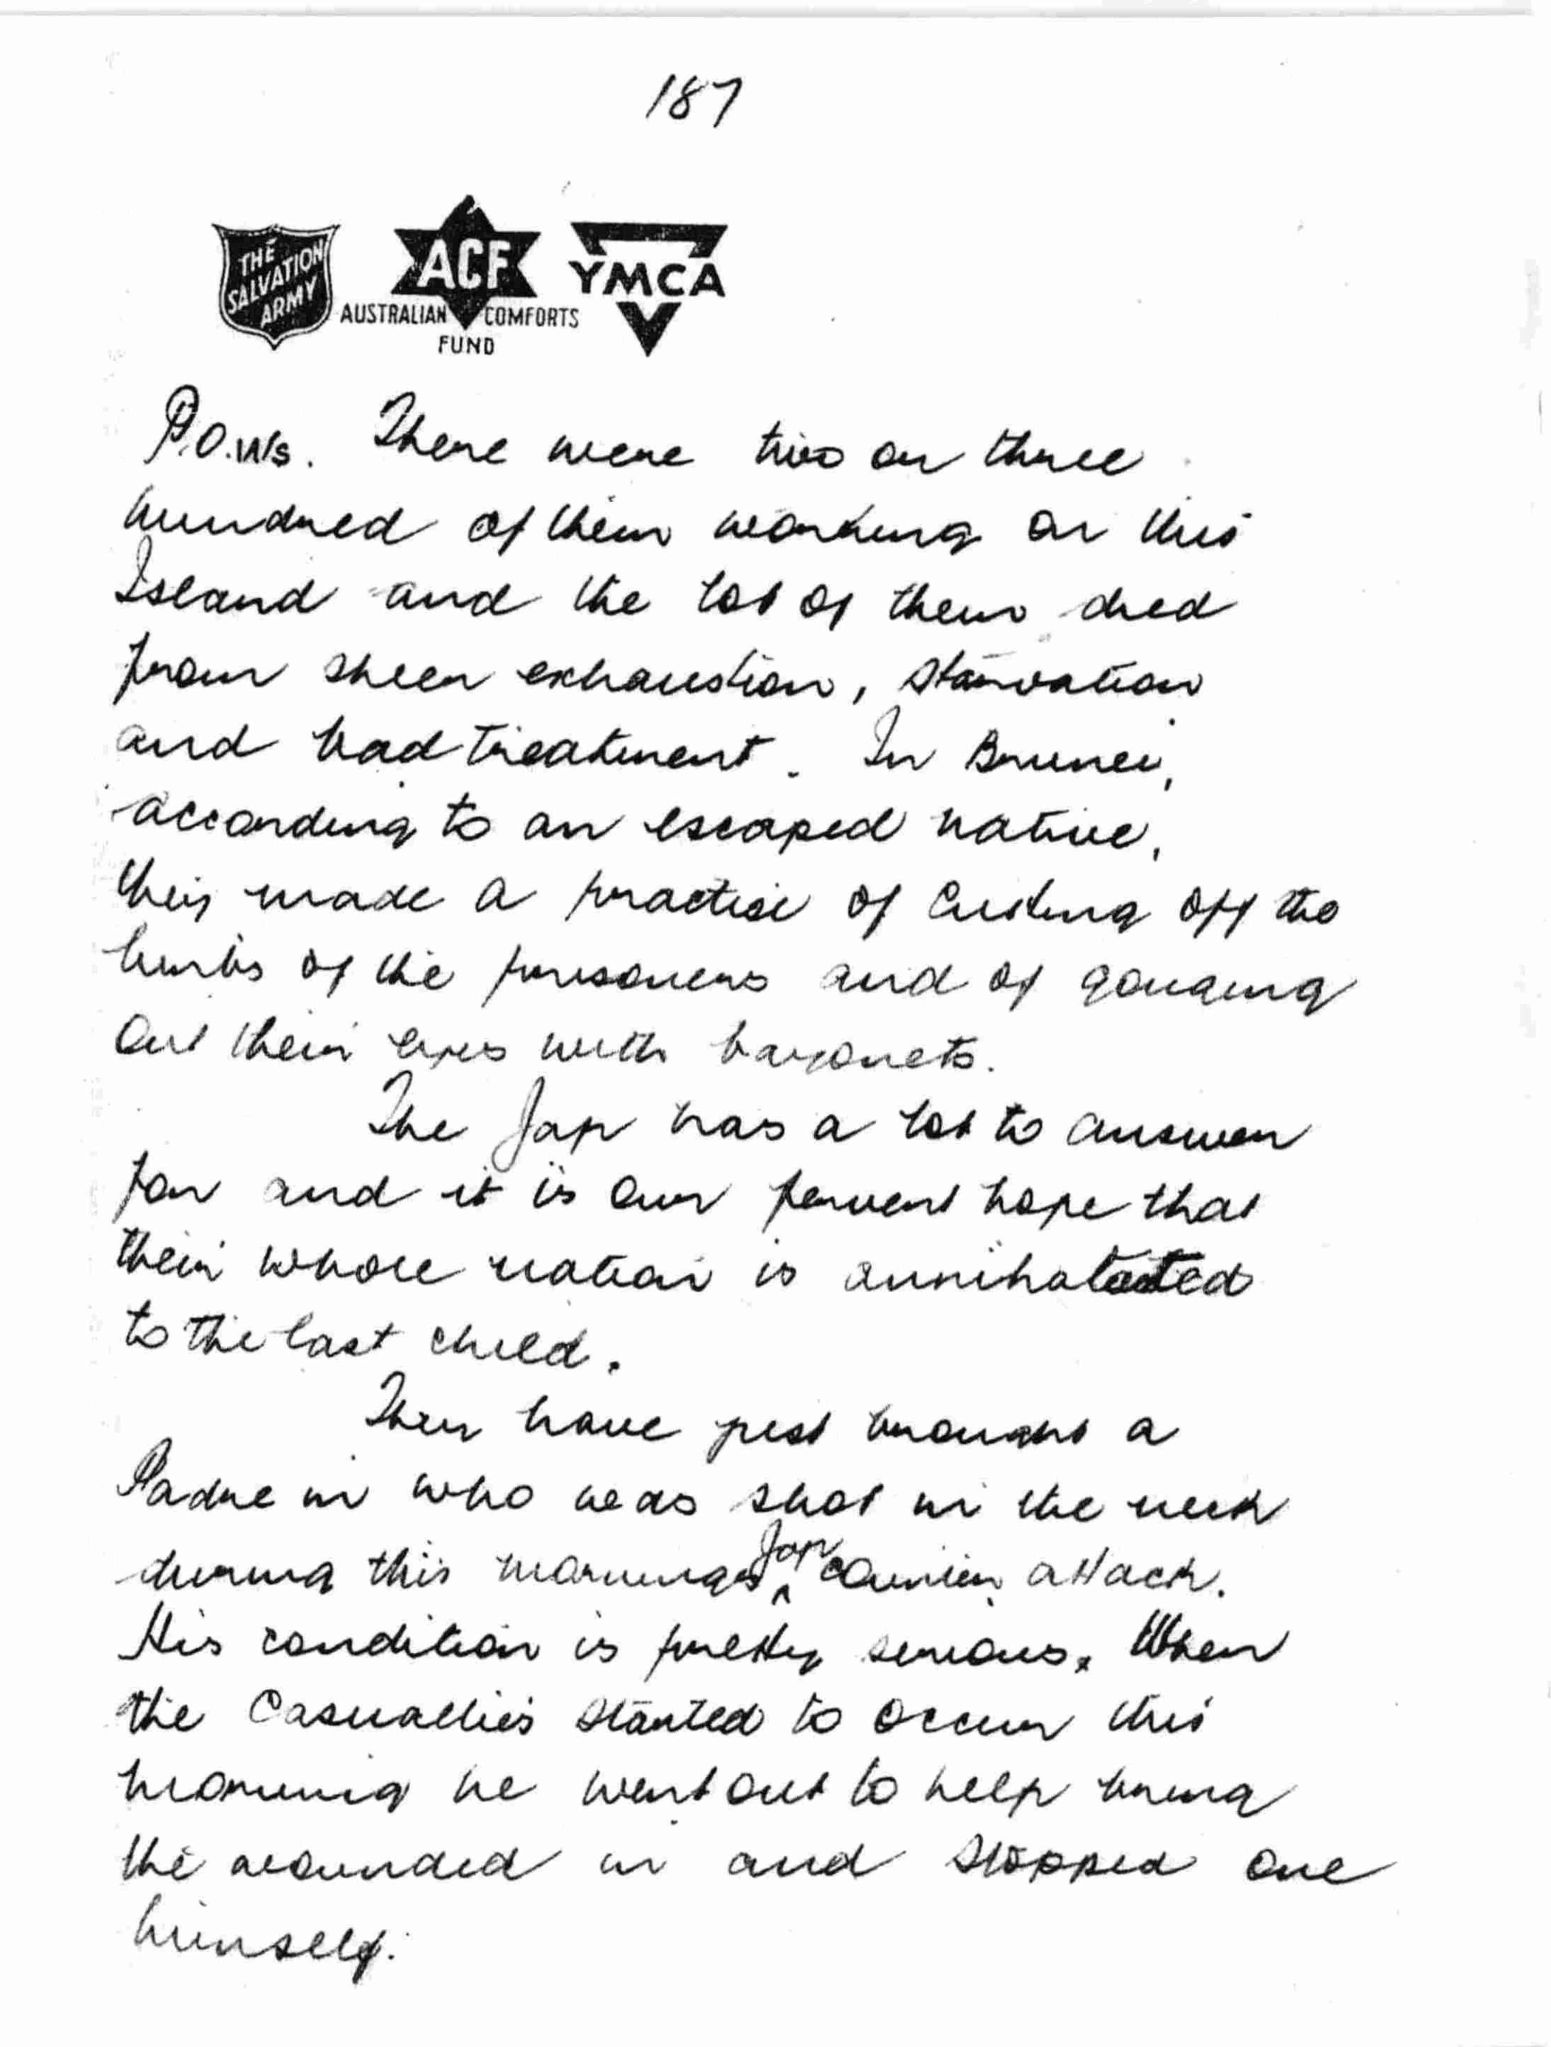 187
THE
SALVATION
ARMY
ACF
YMCA
AUSTRALIAN COMFORTS
FUND
P.O.Ws. There were two or three
hundred of them working on this
Island and the lot of them died
from sheer exhaustion, starvation
and bad treatment. In Brunei,
according to an escaped native,
they made a practise of cutting off the
limbs of the prisoners and of gouging
out their eyes with bayonets.
The Jap has a lot to answer
for and it is our fervent hope that
their whole nation is annihalated
to the last child.
They have just brought a
Padre in who was shot in the neck
during this mornings Jap carrier attack.
His condition is pretty serious. When
the casualties started to occur this
morning he went out to help bring
the wounded in and stopped one
himself.